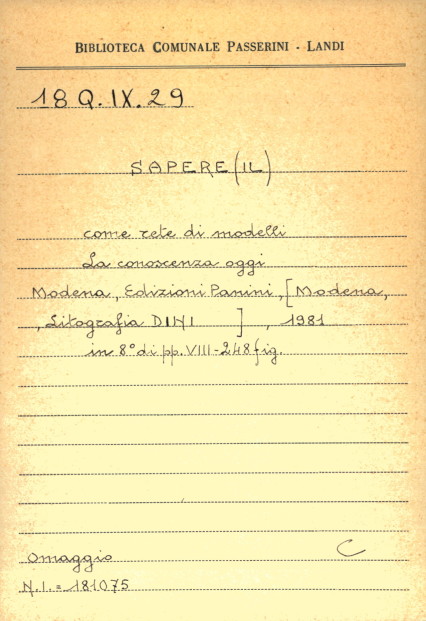 BIBLIOTECA COMUNALE PASSERINI - LANDI
18 Q. IX. 29
SAPERE (IL)
come rete di modelli
La conoscenza oggi
Modena, Edizioni Panini, [Modena,
, Litografia DINI ] , 1981
in 8° di pp. VIII-248 fig.
Omaggio C
N.I. = 181075